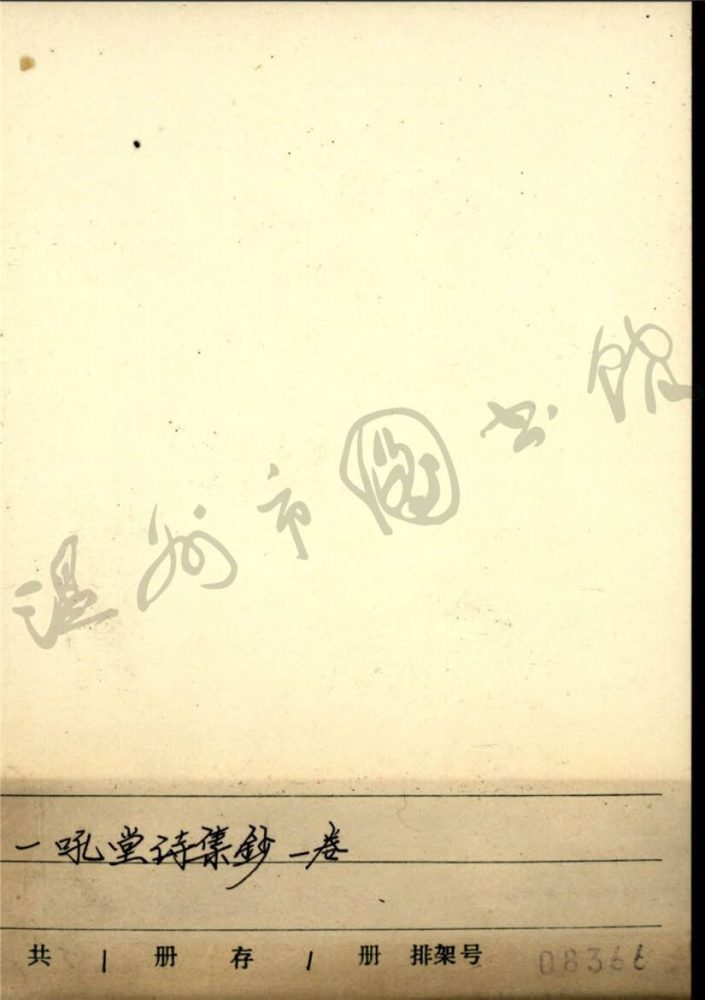 温州市圖书馆
一吼堂诗集鈔一卷
共 1 册 存 1 册 排架号 08366